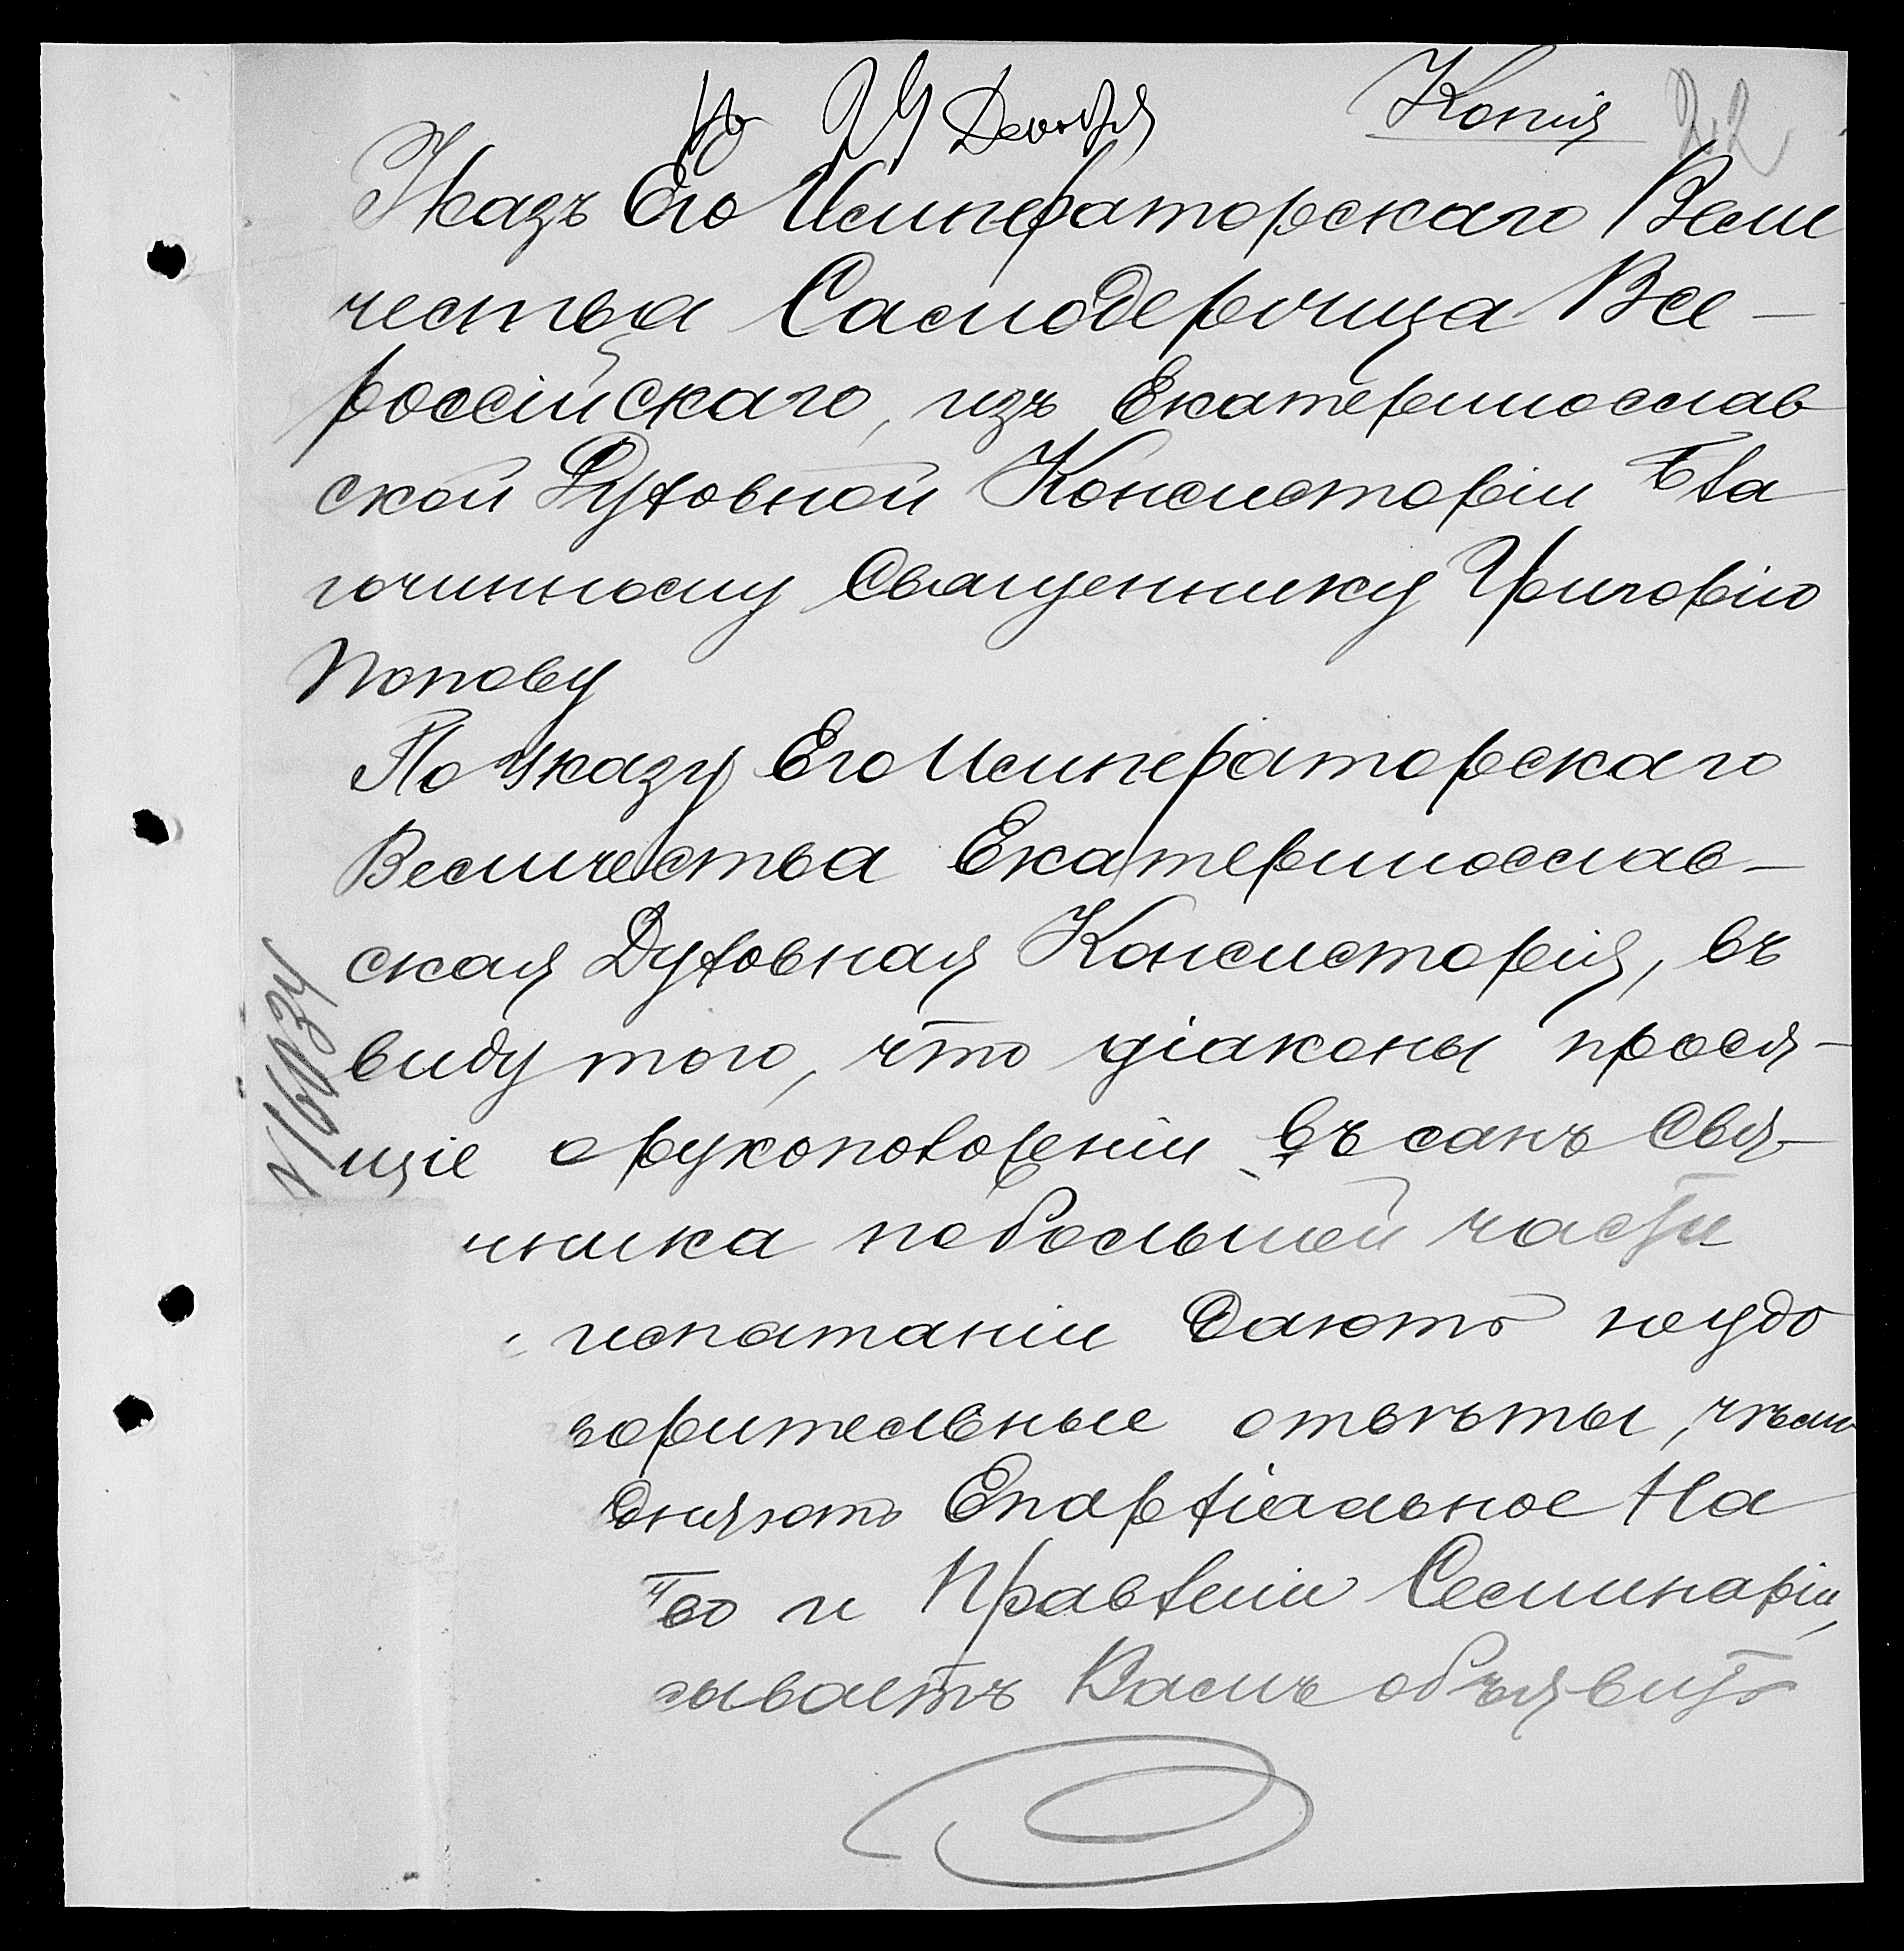 Копія
22
Указъ Его Императорскаго Вели
чества Самодержица Все-
россійскаго, изъ Екатеринослав
ской Духовной Консисторіи Бла
гочинному Священнику Григорію
Попову
По указу Его Императорскаго
Величества Екатеринослав-
ская Духовная Консисторія, въ
виду того, что діаконы прося-
щіе о рукоположеніи въ санъ Свя-
нника по большой части
испытаніи даютъ неудо
ворительные отвѣты, чѣмъ
дняютъ Епархіальное На
тво и Правленіи Семинаріи,
зываетъ Вамъ объявить
№ 16034